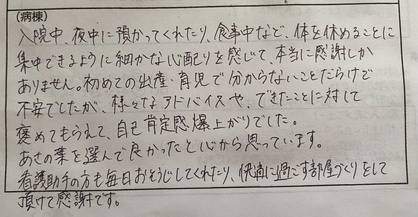 (病棟)
入院中、夜中に預かってくれたり、食事中など、体を休めることに
集中できるように細かな心配りを感じて、本当に感謝しか
ありません。初めての出産・育児で分からないことだらけで
不安でしたが、様々なアドバイスや、できたことに対して
褒めてもらえて、自己肯定感爆上がりでした。
あさの葉を選んで良かったと心から思っています。
看護助手の方も毎日おそうじしてくれたり、快適に過ごす部屋づくりをして
頂けて感謝です。